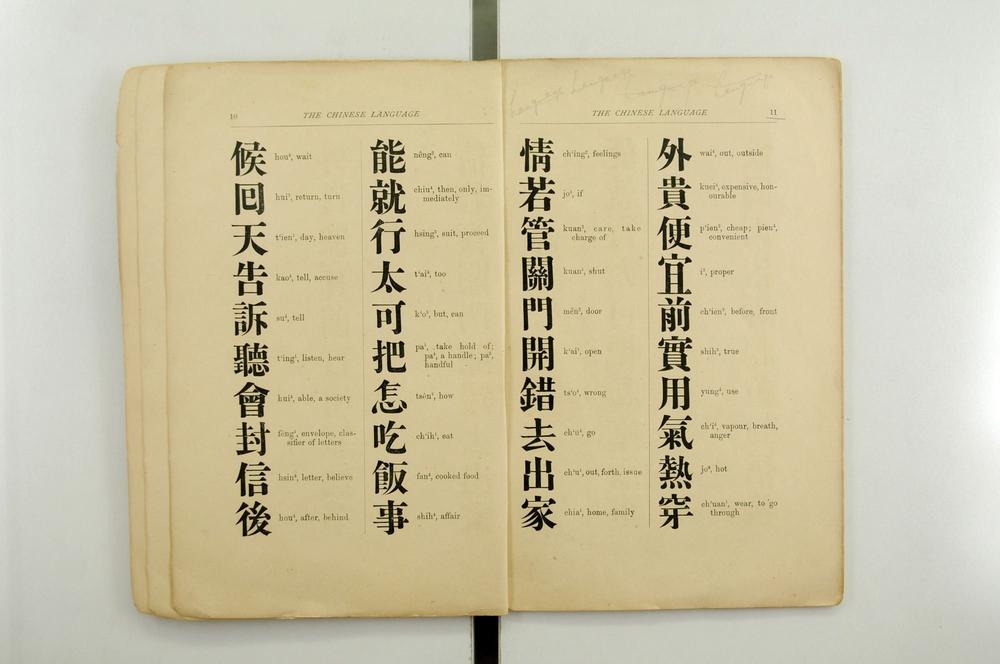 10 THE CHINESE LANGUAGE
候 hou⁴, wait
回 hui², return, turn
天 t'ien¹, day, heaven
告 kao⁴, tell, accuse
訴 su⁴, tell
聽 t'ing¹, listen, hear
會 hui⁴, able, a society
封 fêng¹, envelope, clas-
sifier of letters
信 hsin⁴, letter, believe
後 hou⁴, after, behind
能 nêng², can
就 chiu⁴, then, only, im-
mediately
行 hsing², suit, proceed
太 t'ai⁴, too
可 k'o³, but, can
把 pa³, take hold of;
pa⁴, a handle; pa³,
handful
怎 tsên³, how
吃 ch'ih¹, eat
飯 fan⁴, cooked food
事 shih⁴, affair
THE CHINESE LANGUAGE 11
情 ch'ing², feelings
若 jo⁴, if
管 kuan³, care, take
charge of
關 kuan¹, shut
門 mên², door
開 k'ai¹, open
錯 ts'o⁴, wrong
去 ch'ü⁴, go
出 ch'u¹, out, forth, issue
家 chia¹, home, family
外 wai⁴, out, outside
貴 kuei⁴, expensive, hon-
ourable
便 p'ien², cheap; pien⁴,
convenient
宜 i², proper
前 ch'ien², before, front
實 shih², true
用 yung⁴, use
氣 ch'i⁴, vapour, breath,
anger
熱 jo⁴, hot
穿 ch'uan¹, wear, to go
through